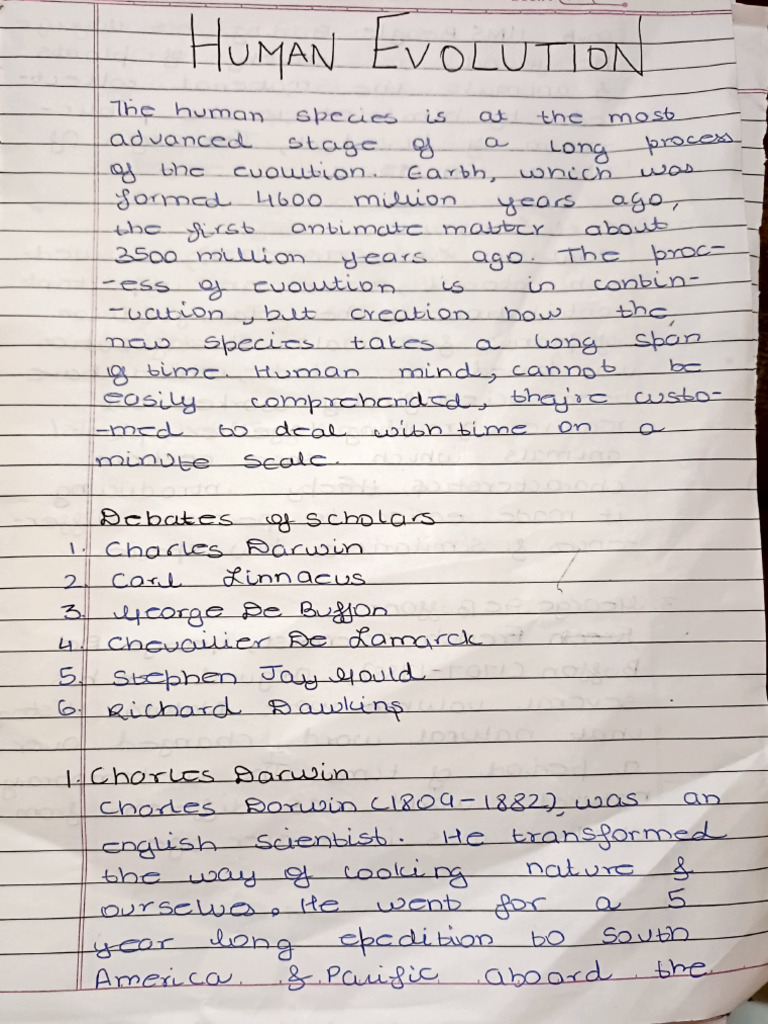 HUMAN EVOLUTION
The human species is at the most
advanced stage of a long process
of the evoulution. Earth, which was
formed 4600 million years ago,
the first antimate matter about
3500 million years ago. The proc-
-ess of evolution is in contin-
-uation, but creation now the
new species takes a long span
of time. Human mind, cannot be
easily comprehended, they're custo-
-med to deal with time on a
minute scale.
Debates of scholars
1. Charles Darwin
2. Carl Linnaeus
3. George De Buffon
4. Chevailier De Lamarck
5. Stephen Jay Gould
6. Richard Dawkins
1. Charles Darwin
Charles Darwin (1809-1882), was an
english scientist. He transformed
the way of looking nature &
ourselves. He went for a 5
year long epedition to South
America & Pacific aboard the